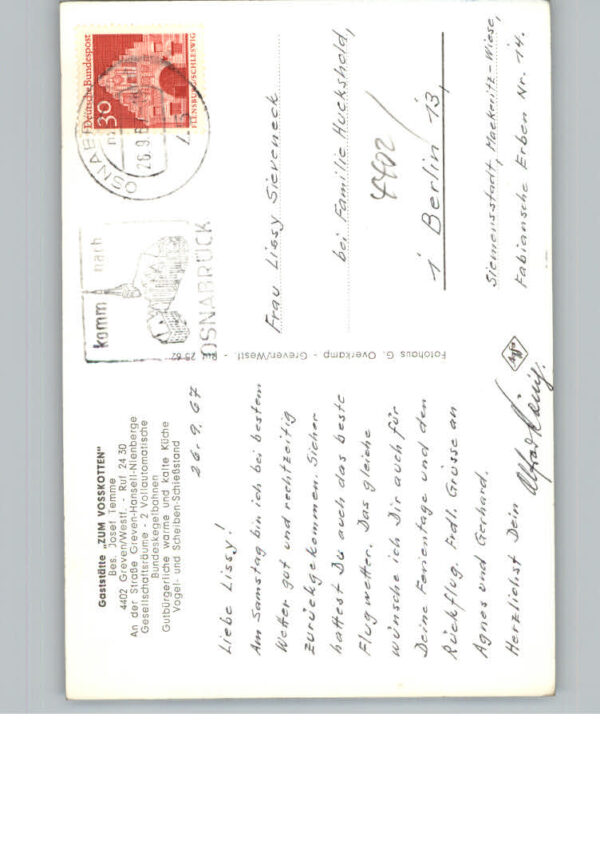 Gaststätte „ZUM VOSSKOTTEN"
Bes. Josef Temme
4402 Greven/Westf. - Ruf 24 30
An der Straße Greven-Hansell-Nienberge
Gesellschaftsräume - 2 Vollautomatische
Bundeskegelbahnen
Gutbürgerliche warme und kalte Küche
Vogel- und Scheiben-Schießstand
26.9.67
Liebe Lissy!
Am Samstag bin ich bei bestem
Wetter gut und rechtzeitig
zurückgekommen. Sicher
hattest Du auch das beste
Flugwetter. Das gleiche
wünsche ich Dir auch für
Deine Ferientage und den
Rückflug. Frdl. Grüsse an
Agnes und Gerhard.
Herzlichst Dein Alfred König.
Fotohaus G. Overkamp - Greven/Westf. - Ruf 25 62
Agfa
komm nach
OSNABRÜCK
OSNAB
26.9.6
Deutsche Bundespost
30
FLENSBURG/SCHLESWIG
Frau Lissy Sieveneck
bei Familie Huckshold,
4402/
1 Berlin 13,
Siemensstadt, Mäckeritz-Wiese,
Fabiansche Erben Nr. 14.